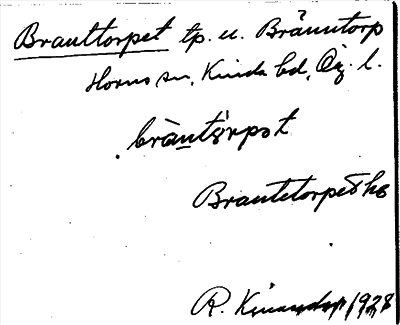 Branttorpet tp. u. Bränntorp
Horns sn, Kinda hd, Ög. l.
bràntòrpət
Brantetorpet hs
R. 1928